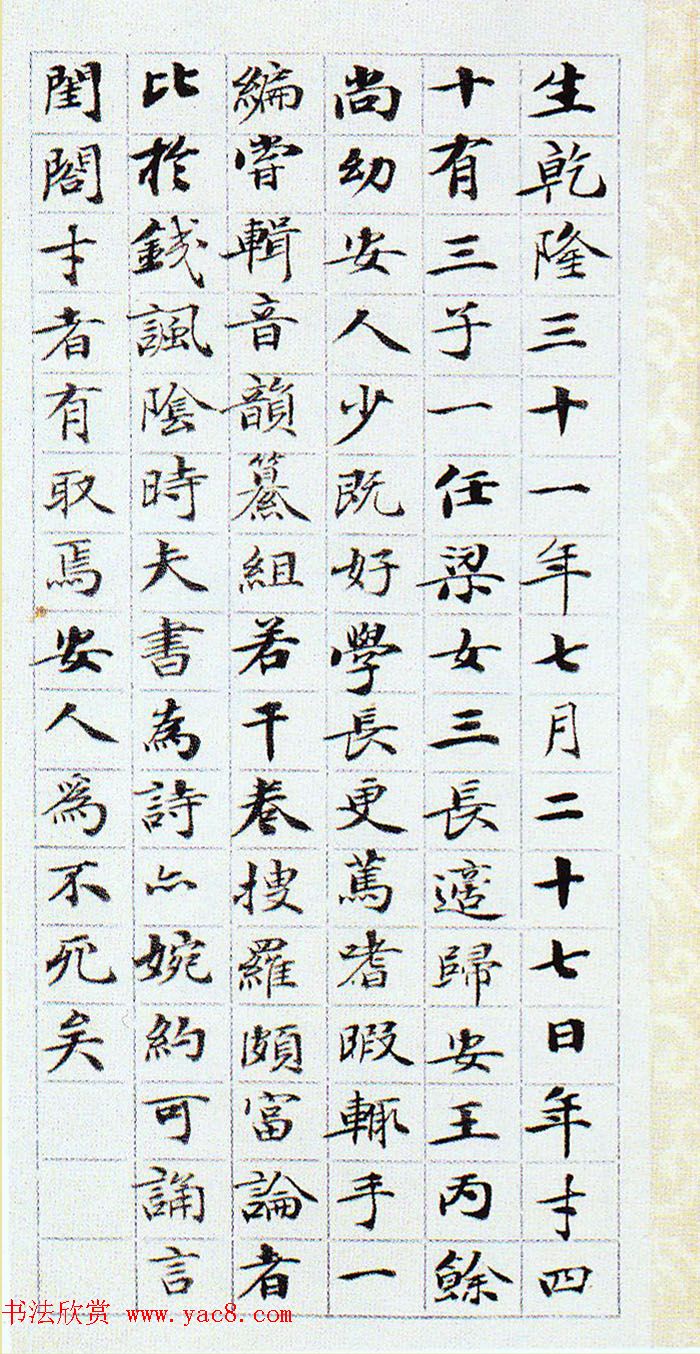 生乾隆三十一年七月二十七日年才四
十有三子一任梁女三長適歸安王丙餘
尚幼安人少既好學長更篤嗜暇輒手一
編嘗輯音韻纂組若干卷搜羅頗富論者
比於錢諷陰時夫書為詩亦婉約可誦言
閨閤才者有取焉安人爲不死矣
书法欣赏 www.yac8.com